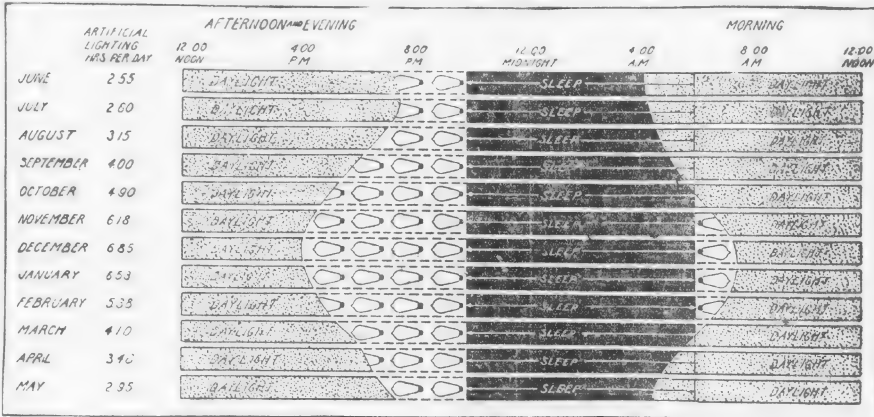 AFTERNOON AND EVENING MORNING
ARTIFICIAL LIGHTING HRS PER DAY 12:00 NOON 4:00 P.M. 8:00 P.M. 12:00 MIDNIGHT 4:00 A.M. 8:00 A.M. 12:00 NOON
JUNE 2.55 DAYLIGHT SLEEP DAYLIGHT
JULY 2.60 DAYLIGHT SLEEP DAYLIGHT
AUGUST 3.15 DAYLIGHT SLEEP DAYLIGHT
SEPTEMBER 4.00 DAYLIGHT SLEEP DAYLIGHT
OCTOBER 4.90 DAYLIGHT SLEEP DAYLIGHT
NOVEMBER 6.18 DAYLIGHT SLEEP DAYLIGHT
DECEMBER 6.85 DAYLIGHT SLEEP DAYLIGHT
JANUARY 6.53 DAYLIGHT SLEEP DAYLIGHT
FEBRUARY 5.38 DAYLIGHT SLEEP DAYLIGHT
MARCH 4.10 DAYLIGHT SLEEP DAYLIGHT
APRIL DAYLIGHT SLEEP DAYLIGHT
MAY 2.95 DAYLIGHT SLEEP DAYLIGHT